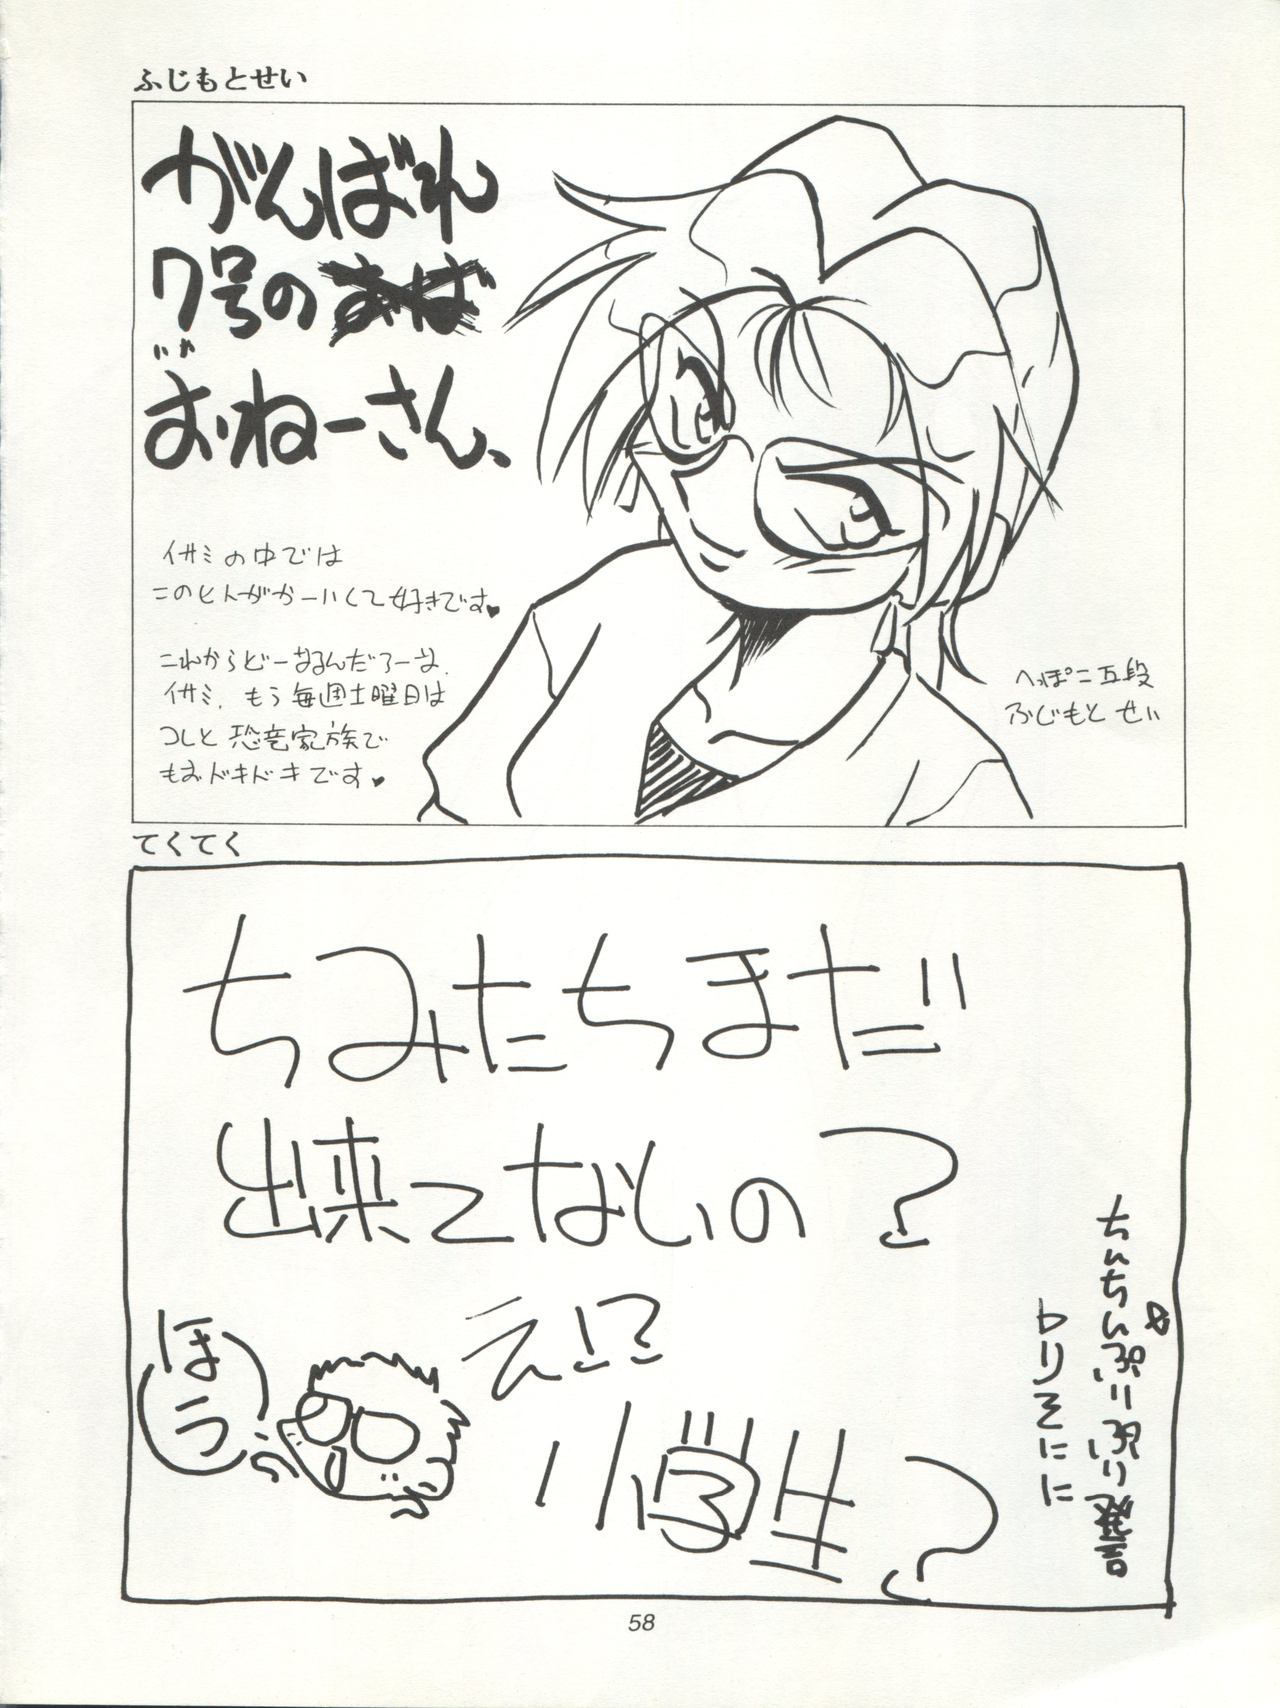 ふじもとせい
がんばれ
7号のおば
おねーさん、
イサミの中では
このヒトがかーいくて好きです♥
これからどーなるんだろーな。
イサミ、もう毎週土曜日は
コレと恐竜家族で
もおドキドキです♥
へっぽこ五段
ふじもと せい
てくてく
ちみたちまだ
出来てないの?
え!?
小学生?
ほう
ちぃちぃぷりぷり発言